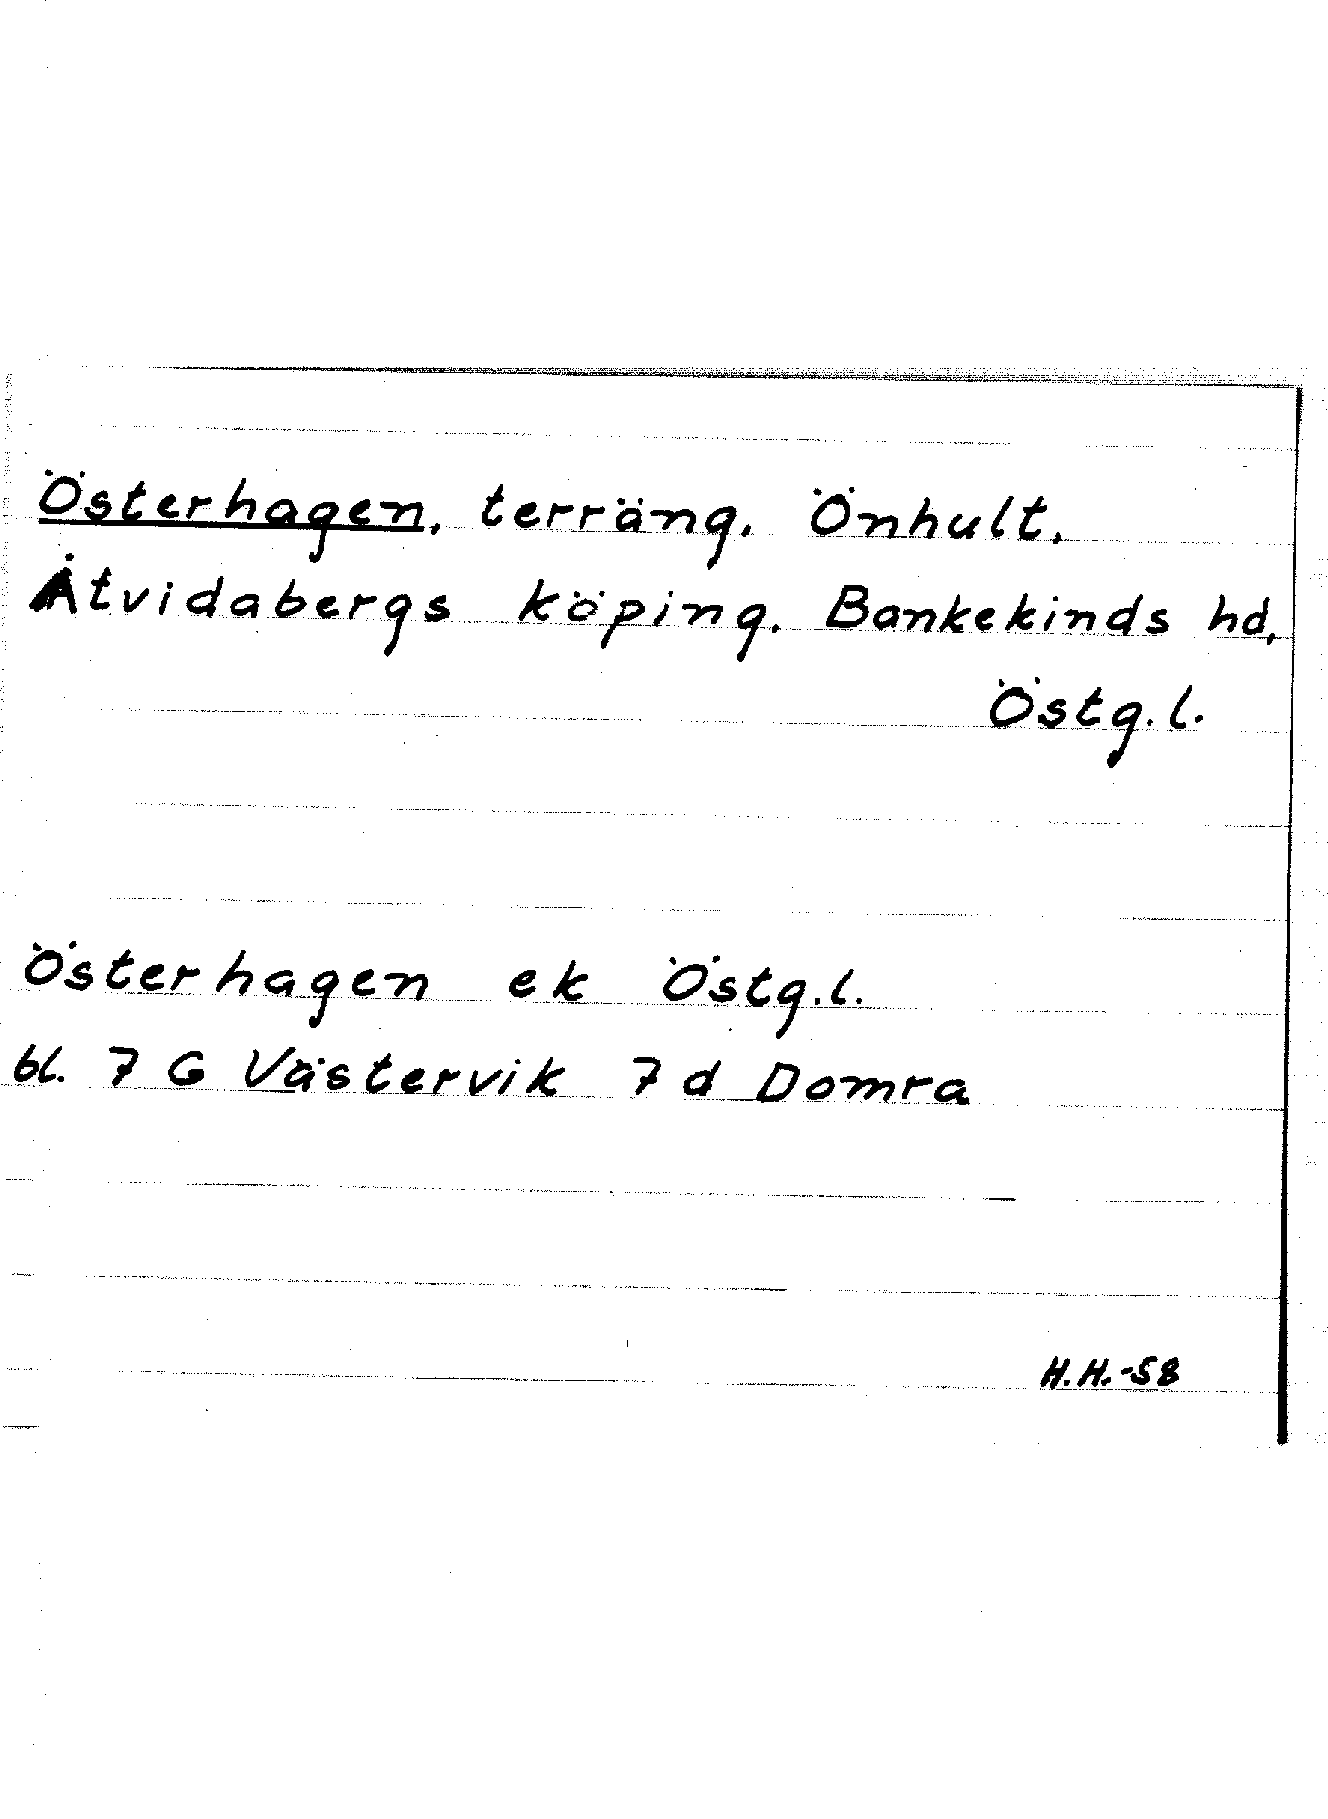 Österhagen, terräng. Önhult.
Åtvidabergs köping. Bankekinds hd,
Östg.l.
Österhagen ek Östg.l.
bl. 7 G Västervik 7 d Domra
H.H.-58